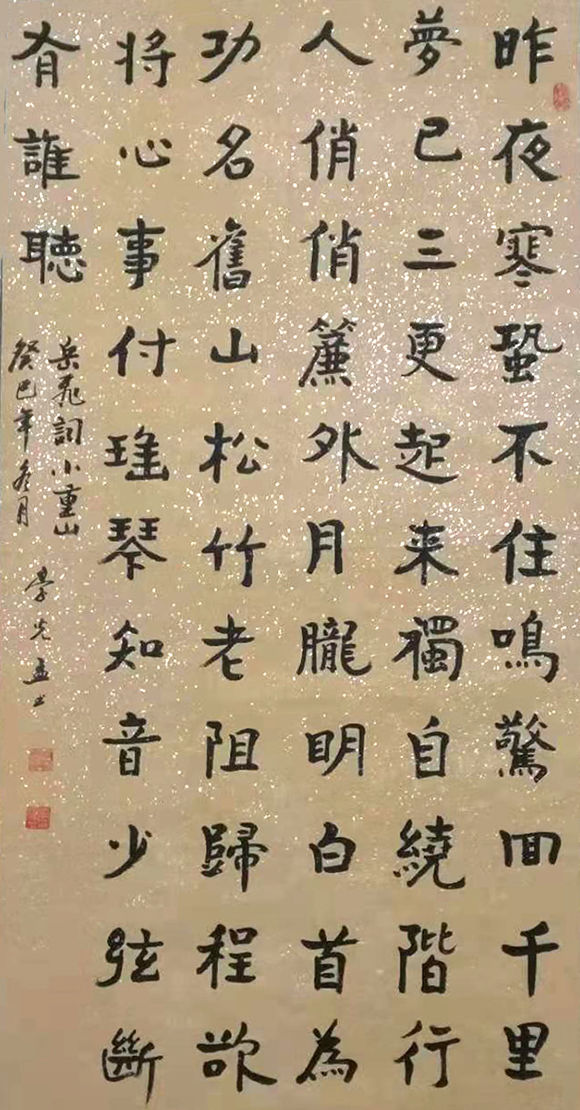 昨夜寒蛩不住鳴驚回千里
夢已三更起来獨自繞階行
人俏俏簾外月朧明白首為
功名舊山松竹老阻歸程欲
将心事付瑤琴知音少弦斷
有誰聴
岳飛詞小重山
癸巳年冬月